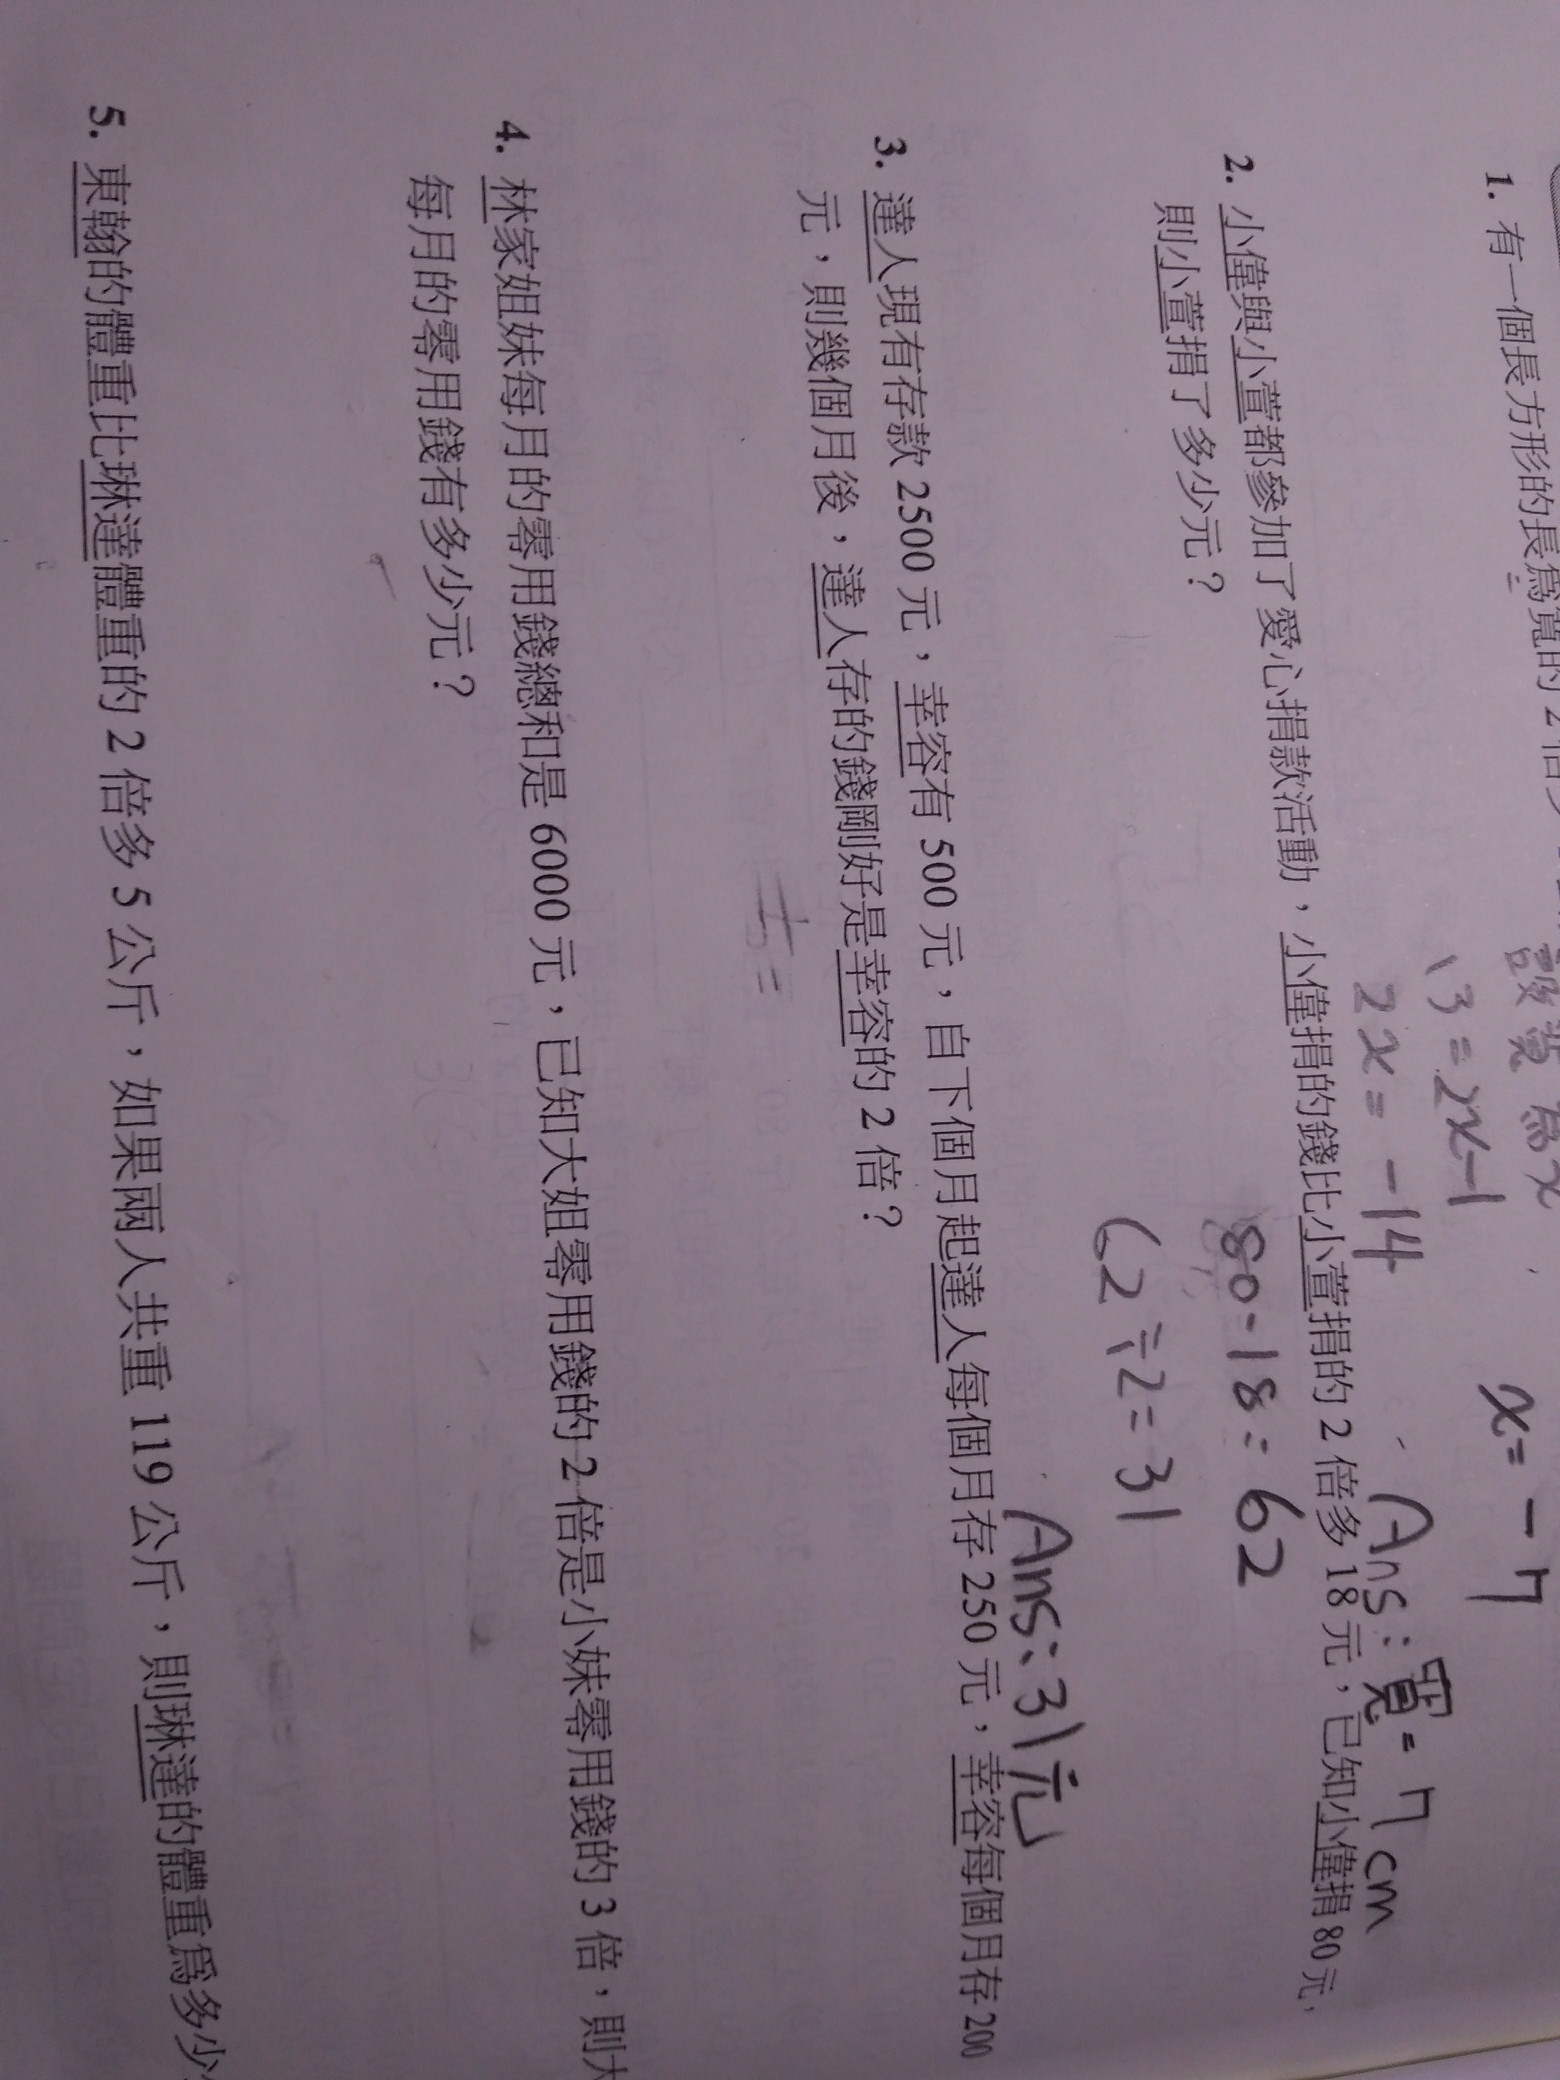 1. 有一個長方形的長為寬的2倍
設寬為x
13=2x-1
2x=-14
x=-7
Ans:寬=7cm
2. 小偉與小萱都參加了愛心捐款活動，小偉捐的錢比小萱捐的2倍多18元，已知小偉捐80元，
則小萱捐了多少元？
80-18=62
62÷2=31
Ans:31元
3. 達人現有存款2500元，幸容有500元，自下個月起達人每個月存250元，幸容每個月存200
元，則幾個月後，達人存的錢剛好是幸容的2倍？
4. 林家姐妹每月的零用錢總和是6000元，已知大姐零用錢的2倍是小妹零用錢的3倍，則大
每月的零用錢有多少元？
5. 東翰的體重比琳達體重的2倍多5公斤，如果兩人共重119公斤，則琳達的體重為多少